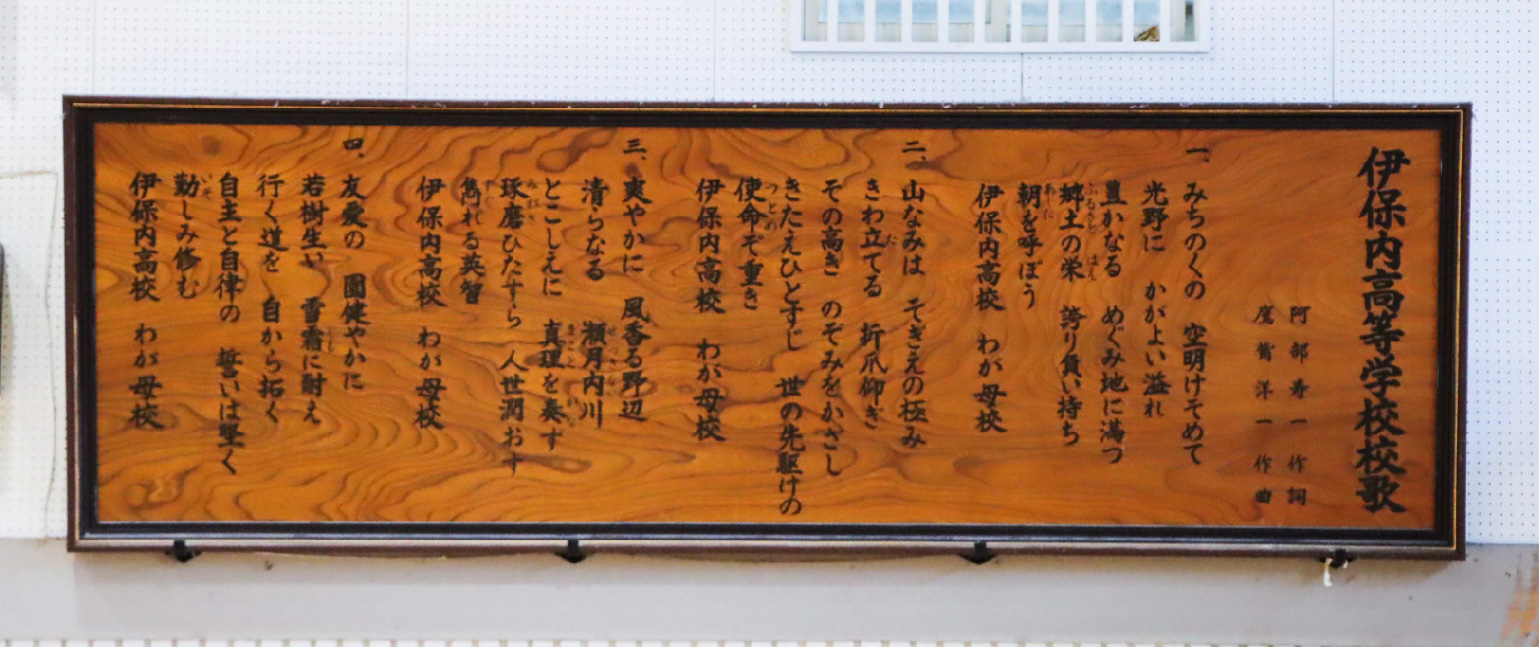 伊保内高等学校校歌
阿部寿一作詞
洋一作曲
一、みちのくの　空明けそめて
光野に　かがよい溢れ
豊かなる　めぐみ地に満つ
郷土の栄　誇り負い持ち
朝を呼ぼう
伊保内高校　わが母校
二、山なみは　そぎえの極み
きわ立てる　折爪仰ぎ
その高き　のぞみをかざし
きたえひとすじ　世の先駆けの
使命ぞ重き
伊保内高校　わが母校
三、爽やかに　風香る野辺
清らなる　瀬月内川
とこしえに　真理を奏す
琢磨ひたすら　人世潤おす
雋れる英智
伊保内高校　わが母校
四、友愛の　園健やかに
若樹生い　雪霜に耐え
行く道を　自から拓く
自主と自律の　誓いは堅く
勤しみ修む
伊保内高校　わが母校